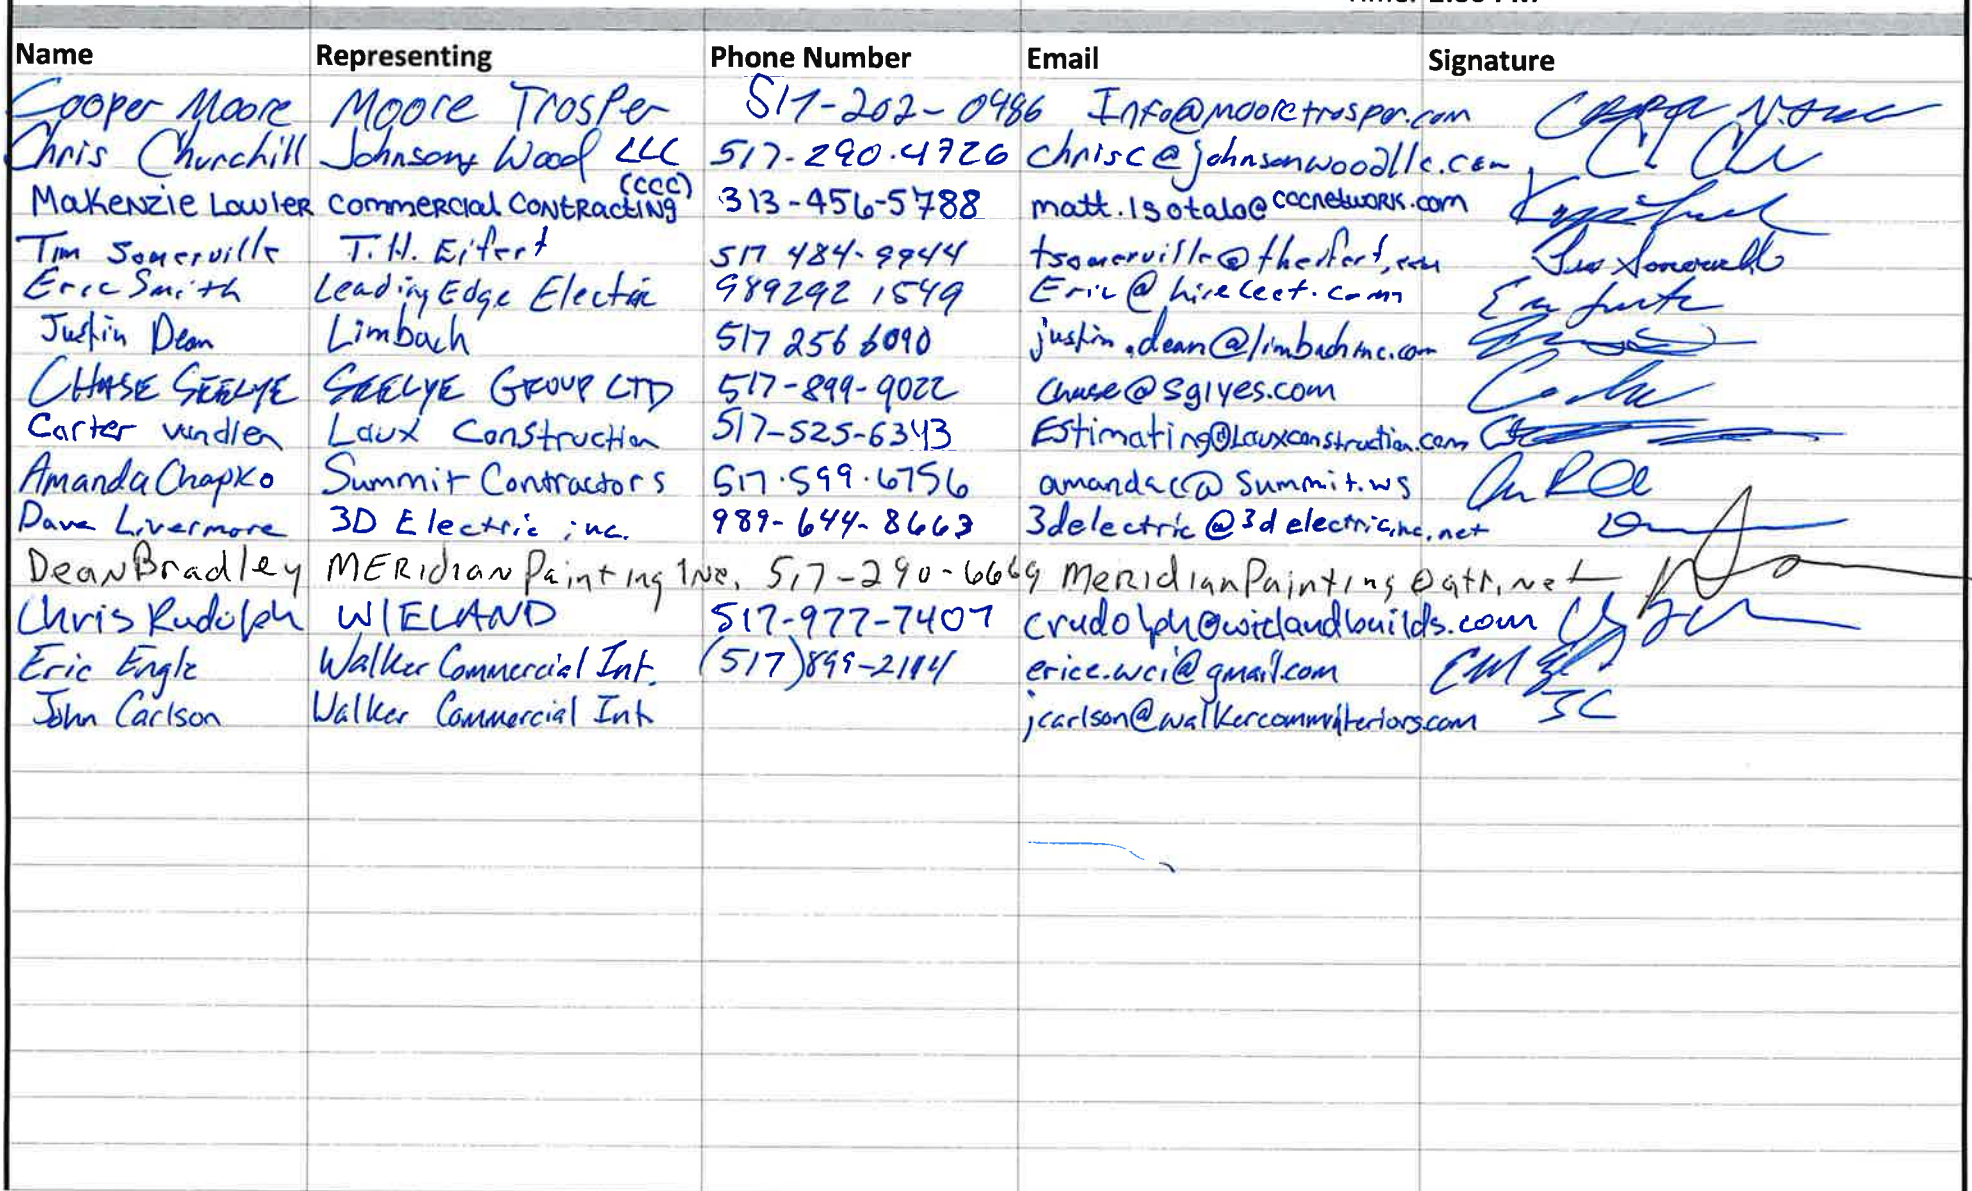 Name Representing Phone Number Email Signature
Cooper Moore Moore Trosper 517-202-0486 Info@mooretrosper.com
Chris Churchill Johnson & Wood LLC 517-290-4726 chrisc@johnsonwoodllc.com
(CCC)
Makenzie Lawler Commercial Contracting 313-456-5788 matt.isotalo@cccnetwork.com
Tim Somerville T.H. Eifert 517 484-9944 tsomerville@theifert.com
Eric Smith Leading Edge Electric 989 292 1549 Eric@hireleet.com
Justin Dean Limbach 517 256 6090 justin.dean@limbachinc.com
CHASE SEELYE SEELYE GROUP LTD 517-899-9022 Chase@sglyes.com
Carter Laux Construction 517-525-6343 Estimating@Lauxconstruction.com
Amanda Chapko Summit Contractors 517.599.6756 amandac@summit.ws
Dave Livermore 3D Electric inc. 989-644-8663 3delectric@3delectricinc.net
Dean Bradley MERidian Painting Inc. 517-290-6669 MeridianPainting@att.net
Chris Rudolph WIELAND 517-977-7407 crudolph@wielandbuilds.com
Eric Engle Walker Commercial Int. (517) erice.wci@gmail.com
John Carlson Walker Commercial Int. jcarlson@walkercomminteriors.com JC